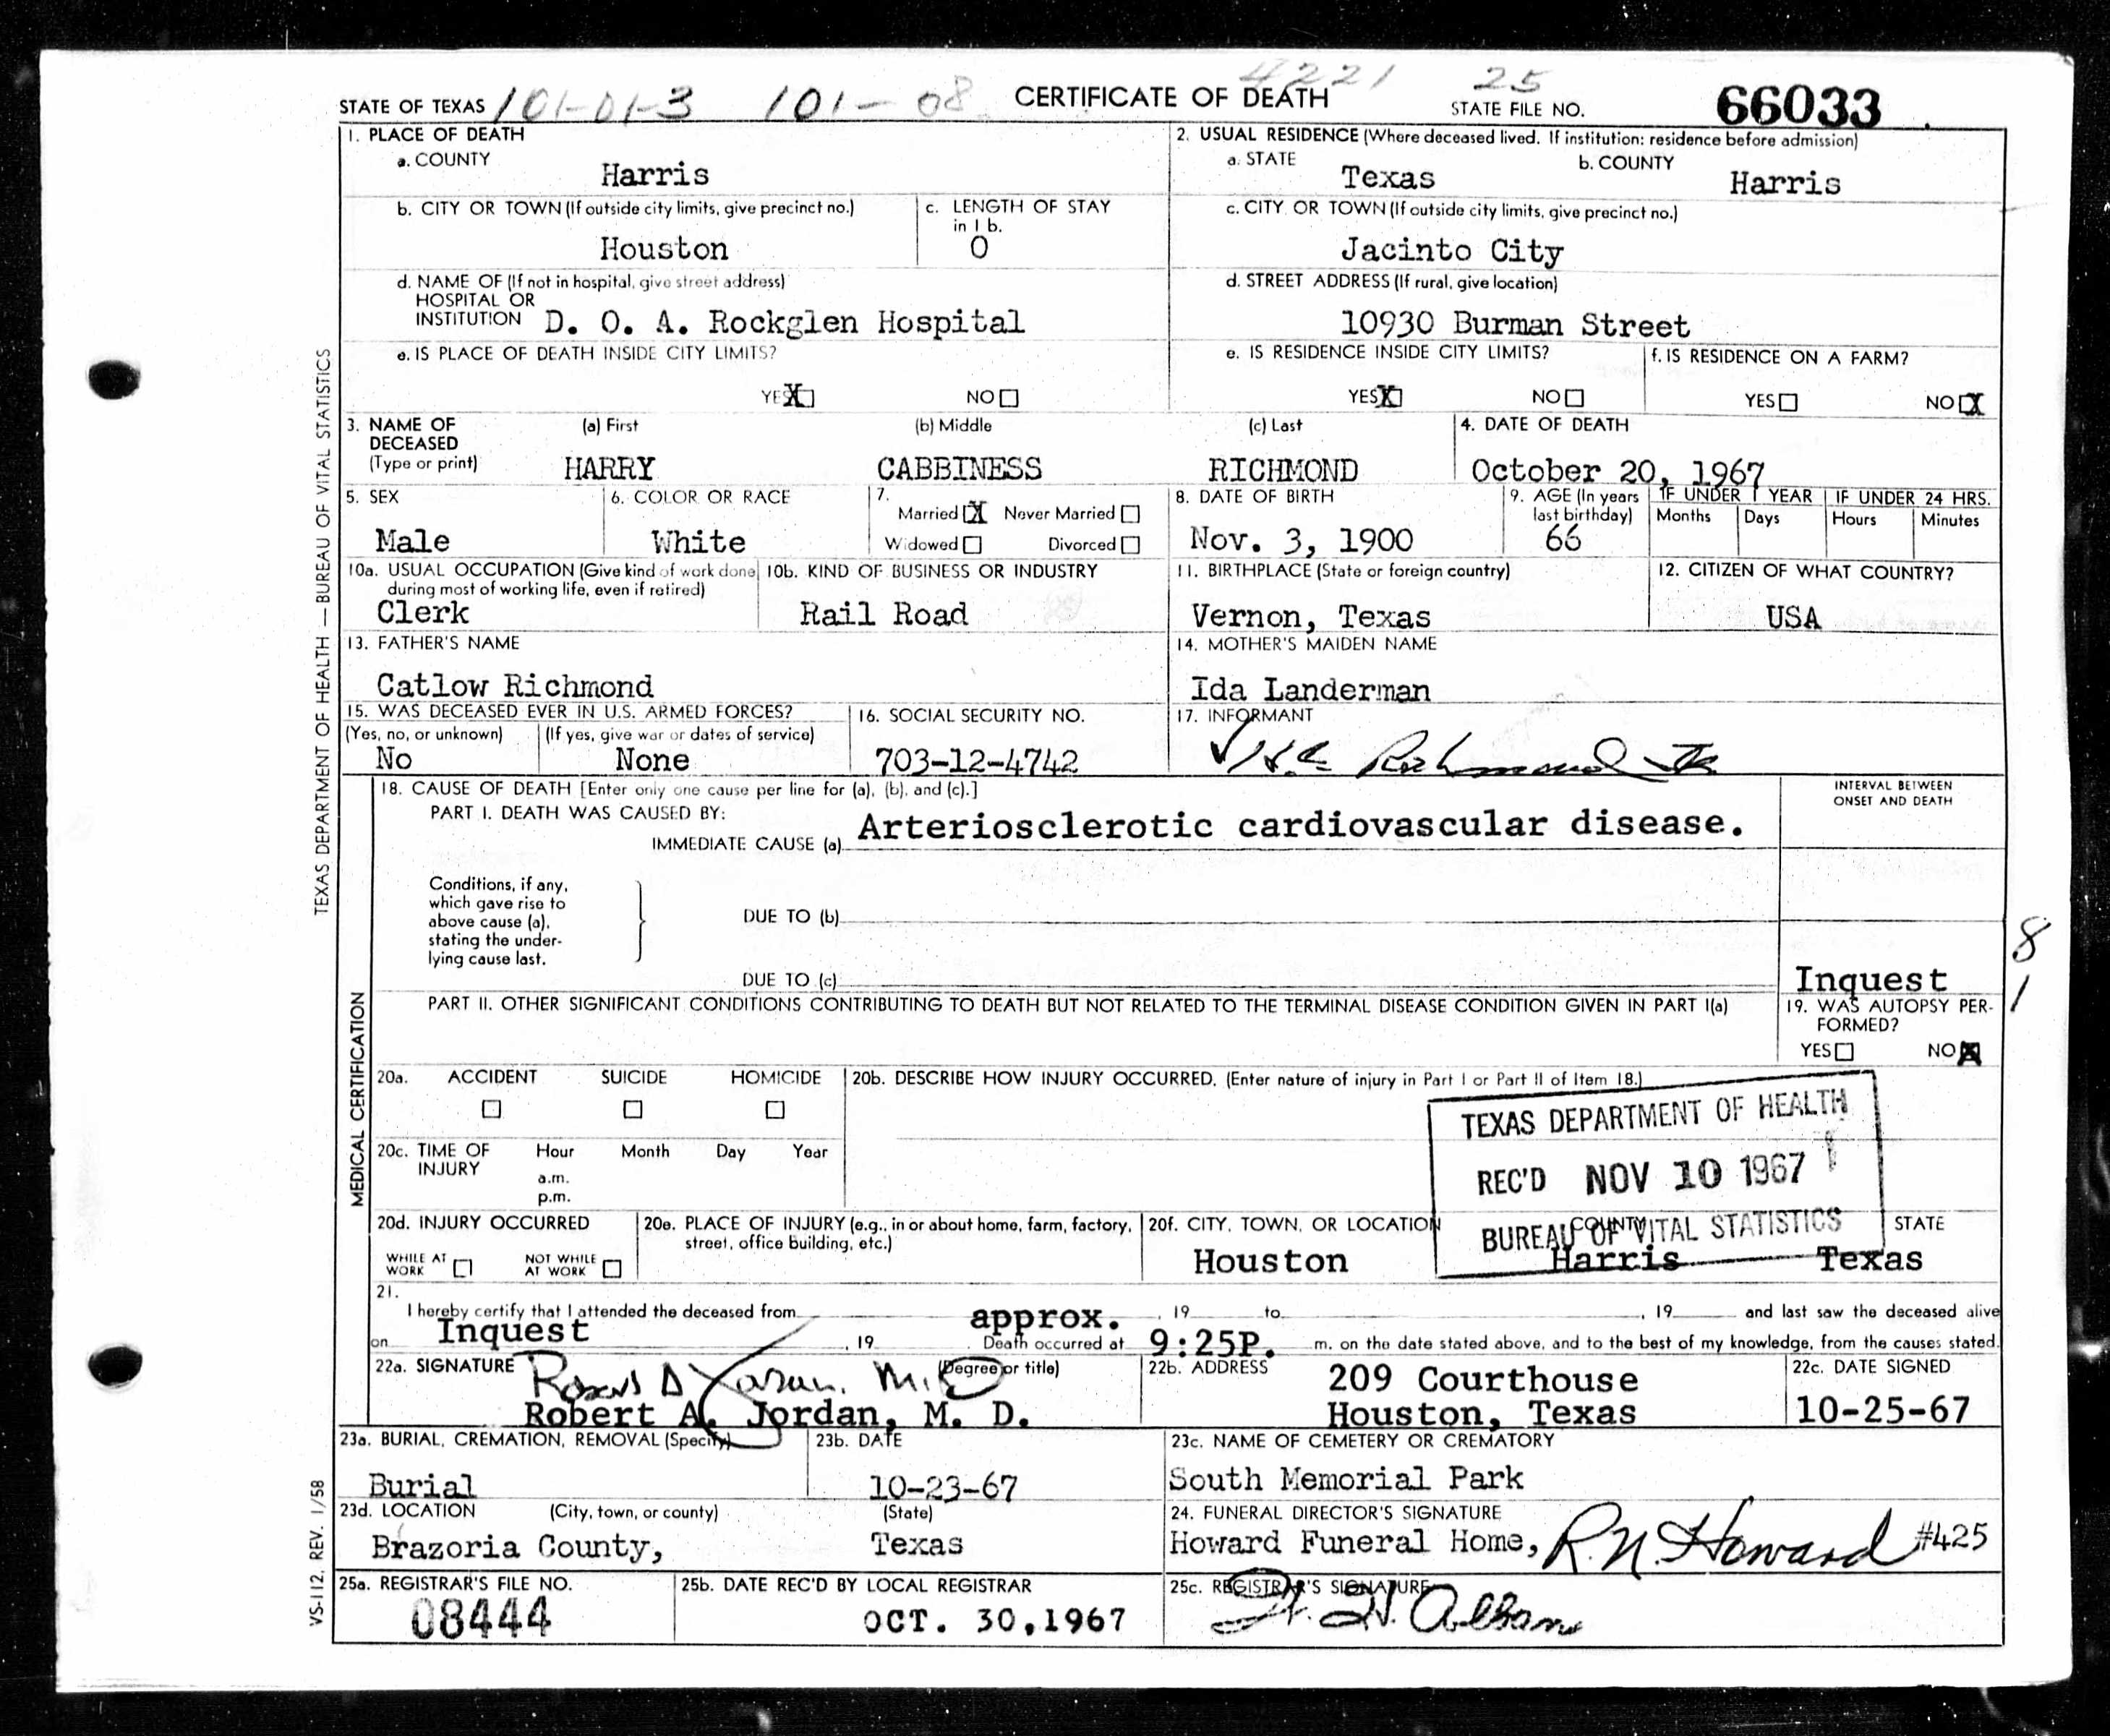 4221 25
STATE OF TEXAS 101-01-3 101-08 CERTIFICATE OF DEATH STATE FILE NO. 66033
1. PLACE OF DEATH
a. COUNTY
Harris
2. USUAL RESIDENCE (Where deceased lived. If institution: residence before admission)
a. STATE b. COUNTY
Texas Harris
b. CITY OR TOWN (If outside city limits, give precinct no.)
Houston
c. LENGTH OF STAY
in 1 b.
0
c. CITY OR TOWN (If outside city limits, give precinct no.)
Jacinto City
d. NAME OF (If not in hospital, give street address)
HOSPITAL OR
INSTITUTION D. O. A. Rockglen Hospital
d. STREET ADDRESS (If rural, give location)
10930 Burman Street
e. IS PLACE OF DEATH INSIDE CITY LIMITS?
YES X NO
e. IS RESIDENCE INSIDE CITY LIMITS?
YES X NO
f. IS RESIDENCE ON A FARM?
YES NO X
3. NAME OF (a) First (b) Middle (c) Last
DECEASED
(Type or print) HARRY CABBINESS RICHMOND
4. DATE OF DEATH
October 20, 1967
5. SEX
Male
6. COLOR OR RACE
White
7.
Married X Never Married
Widowed Divorced
8. DATE OF BIRTH
Nov. 3, 1900
9. AGE (In years
last birthday)
66
IF UNDER 1 YEAR IF UNDER 24 HRS.
Months Days Hours Minutes
10a. USUAL OCCUPATION (Give kind of work done
during most of working life, even if retired)
Clerk
10b. KIND OF BUSINESS OR INDUSTRY
Rail Road
11. BIRTHPLACE (State or foreign country)
Vernon, Texas
12. CITIZEN OF WHAT COUNTRY?
USA
13. FATHER'S NAME
Catlow Richmond
14. MOTHER'S MAIDEN NAME
Ida Landerman
15. WAS DECEASED EVER IN U.S. ARMED FORCES?
(Yes, no, or unknown) (If yes, give war or dates of service)
No None
16. SOCIAL SECURITY NO.
703-12-4742
17. INFORMANT
Richmond Jr
18. CAUSE OF DEATH [Enter only one cause per line for (a), (b), and (c).]
PART I. DEATH WAS CAUSED BY:
IMMEDIATE CAUSE (a) Arteriosclerotic cardiovascular disease.
INTERVAL BETWEEN
ONSET AND DEATH
Conditions, if any,
which gave rise to
above cause (a),
stating the under-
lying cause last.
DUE TO (b)
DUE TO (c)
Inquest
8
1
PART II. OTHER SIGNIFICANT CONDITIONS CONTRIBUTING TO DEATH BUT NOT RELATED TO THE TERMINAL DISEASE CONDITION GIVEN IN PART I(a)
19. WAS AUTOPSY PER-
FORMED?
YES NO X
20a. ACCIDENT SUICIDE HOMICIDE
20b. DESCRIBE HOW INJURY OCCURRED. (Enter nature of injury in Part I or Part II of Item 18.)
TEXAS DEPARTMENT OF HEALTH
REC'D NOV 10 1967
BUREAU OF VITAL STATISTICS
20c. TIME OF Hour Month Day Year
INJURY
a.m.
p.m.
20d. INJURY OCCURRED
WHILE AT
WORK
NOT WHILE
AT WORK
20e. PLACE OF INJURY (e.g., in or about home, farm, factory,
street, office building, etc.)
20f. CITY, TOWN, OR LOCATION COUNTY STATE
Houston Harris Texas
21.
I hereby certify that I attended the deceased from approx. , 19 to , 19 and last saw the deceased alive
on Inquest , 19 Death occurred at 9:25P. m. on the date stated above, and to the best of my knowledge, from the causes stated.
22a. SIGNATURE (Degree or title)
Robert A. Jordan, M. D.
22b. ADDRESS
209 Courthouse
Houston, Texas
22c. DATE SIGNED
10-25-67
23a. BURIAL, CREMATION, REMOVAL (Specify)
Burial
23b. DATE
10-23-67
23c. NAME OF CEMETERY OR CREMATORY
South Memorial Park
23d. LOCATION (City, town, or county) (State)
Brazoria County, Texas
24. FUNERAL DIRECTOR'S SIGNATURE
Howard Funeral Home, R.N. Howard #425
25a. REGISTRAR'S FILE NO.
08444
25b. DATE REC'D BY LOCAL REGISTRAR
OCT. 30, 1967
25c. REGISTRAR'S SIGNATURE
TEXAS DEPARTMENT OF HEALTH — BUREAU OF VITAL STATISTICS
MEDICAL CERTIFICATION
VS-112, REV. 1/58